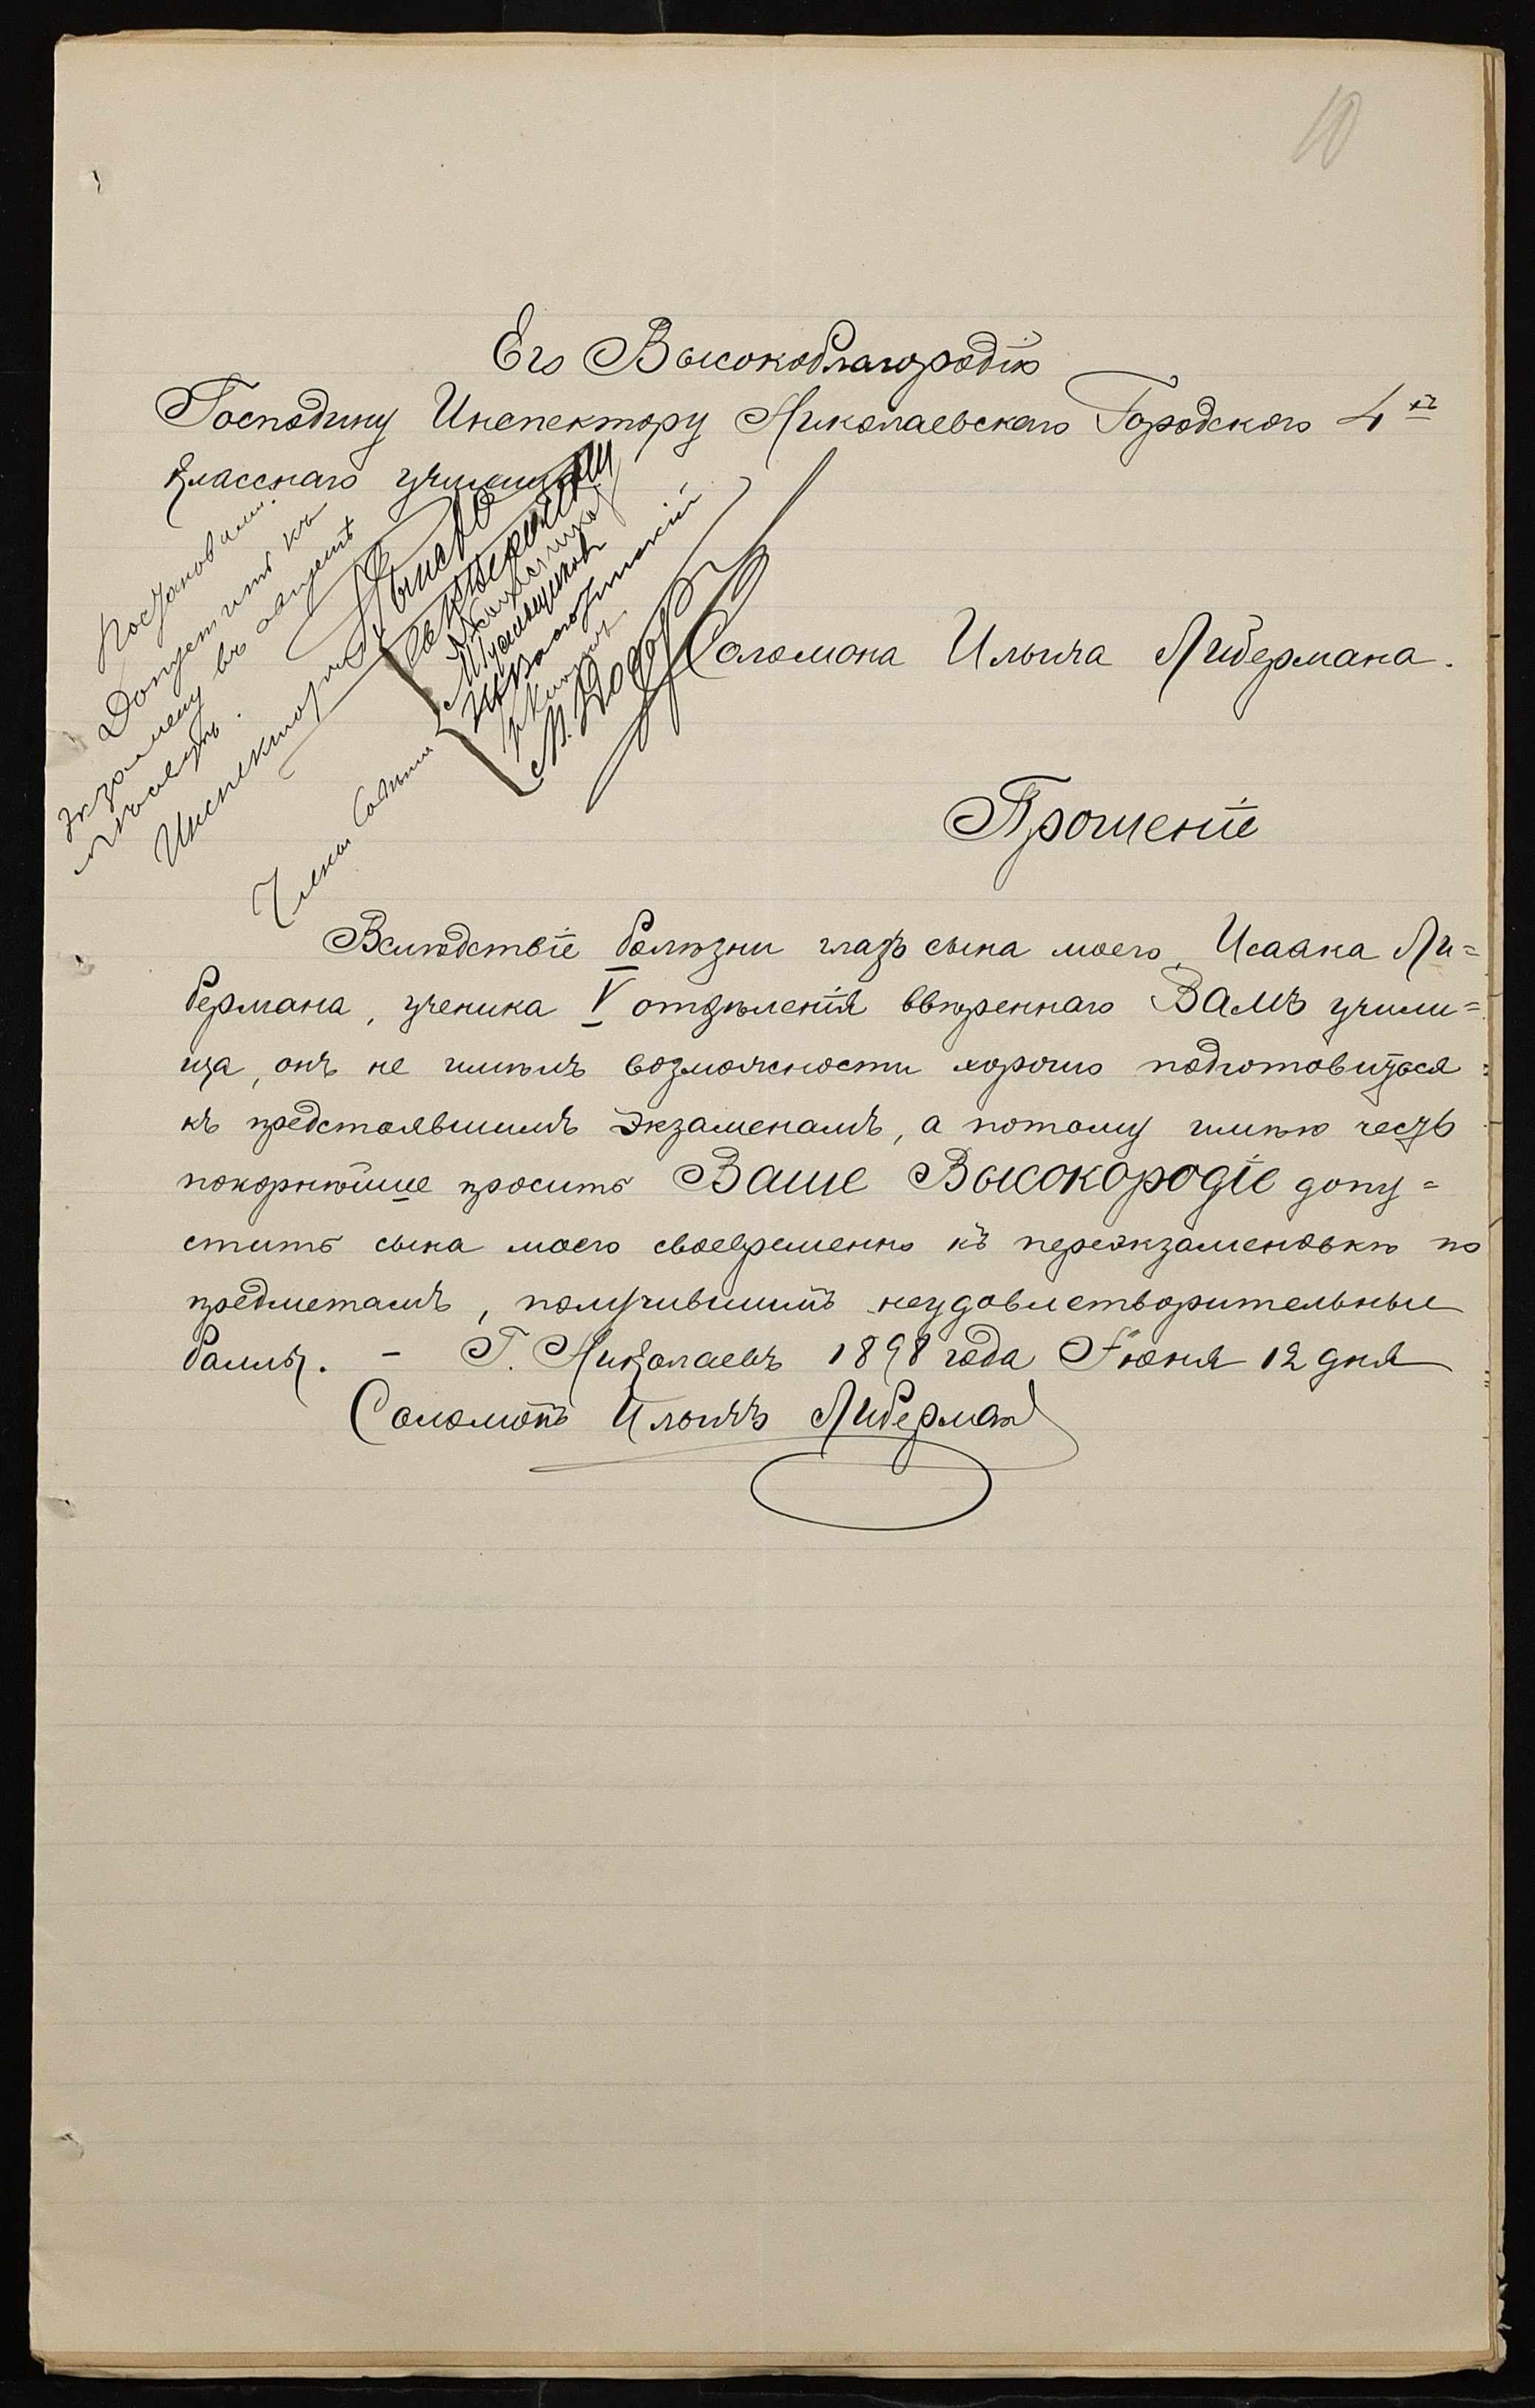 10
Его Высокоблагородію
Господину Инспектору Николаевскаго Городского 4х
класснаго училища
Постановили:
Допустить къ
экзамену въ августѣ
мѣсяцѣ.
Инспекторъ
Члены Совѣта
Соломона Ильича Либермана.
Прошеніе
Вслѣдствіе болѣзни глазъ сына моего, Исаака Ли=
бермана, ученика V отдѣленія ввѣреннаго Вамъ учили=
ща, онъ не имѣлъ возможности хорошо подготовиться
къ предстоявшимъ экзаменамъ, а потому имѣю честь
покорнѣйше просить Ваше Высокородіе допу=
стить сына моего своевременно къ переэкзаменовкѣ по
предметамъ, получившимъ неудовлетворительные
баллы. - Г. Николаевъ 1898 года Іюня 12 дня
Соломонъ Ильичъ Либерман